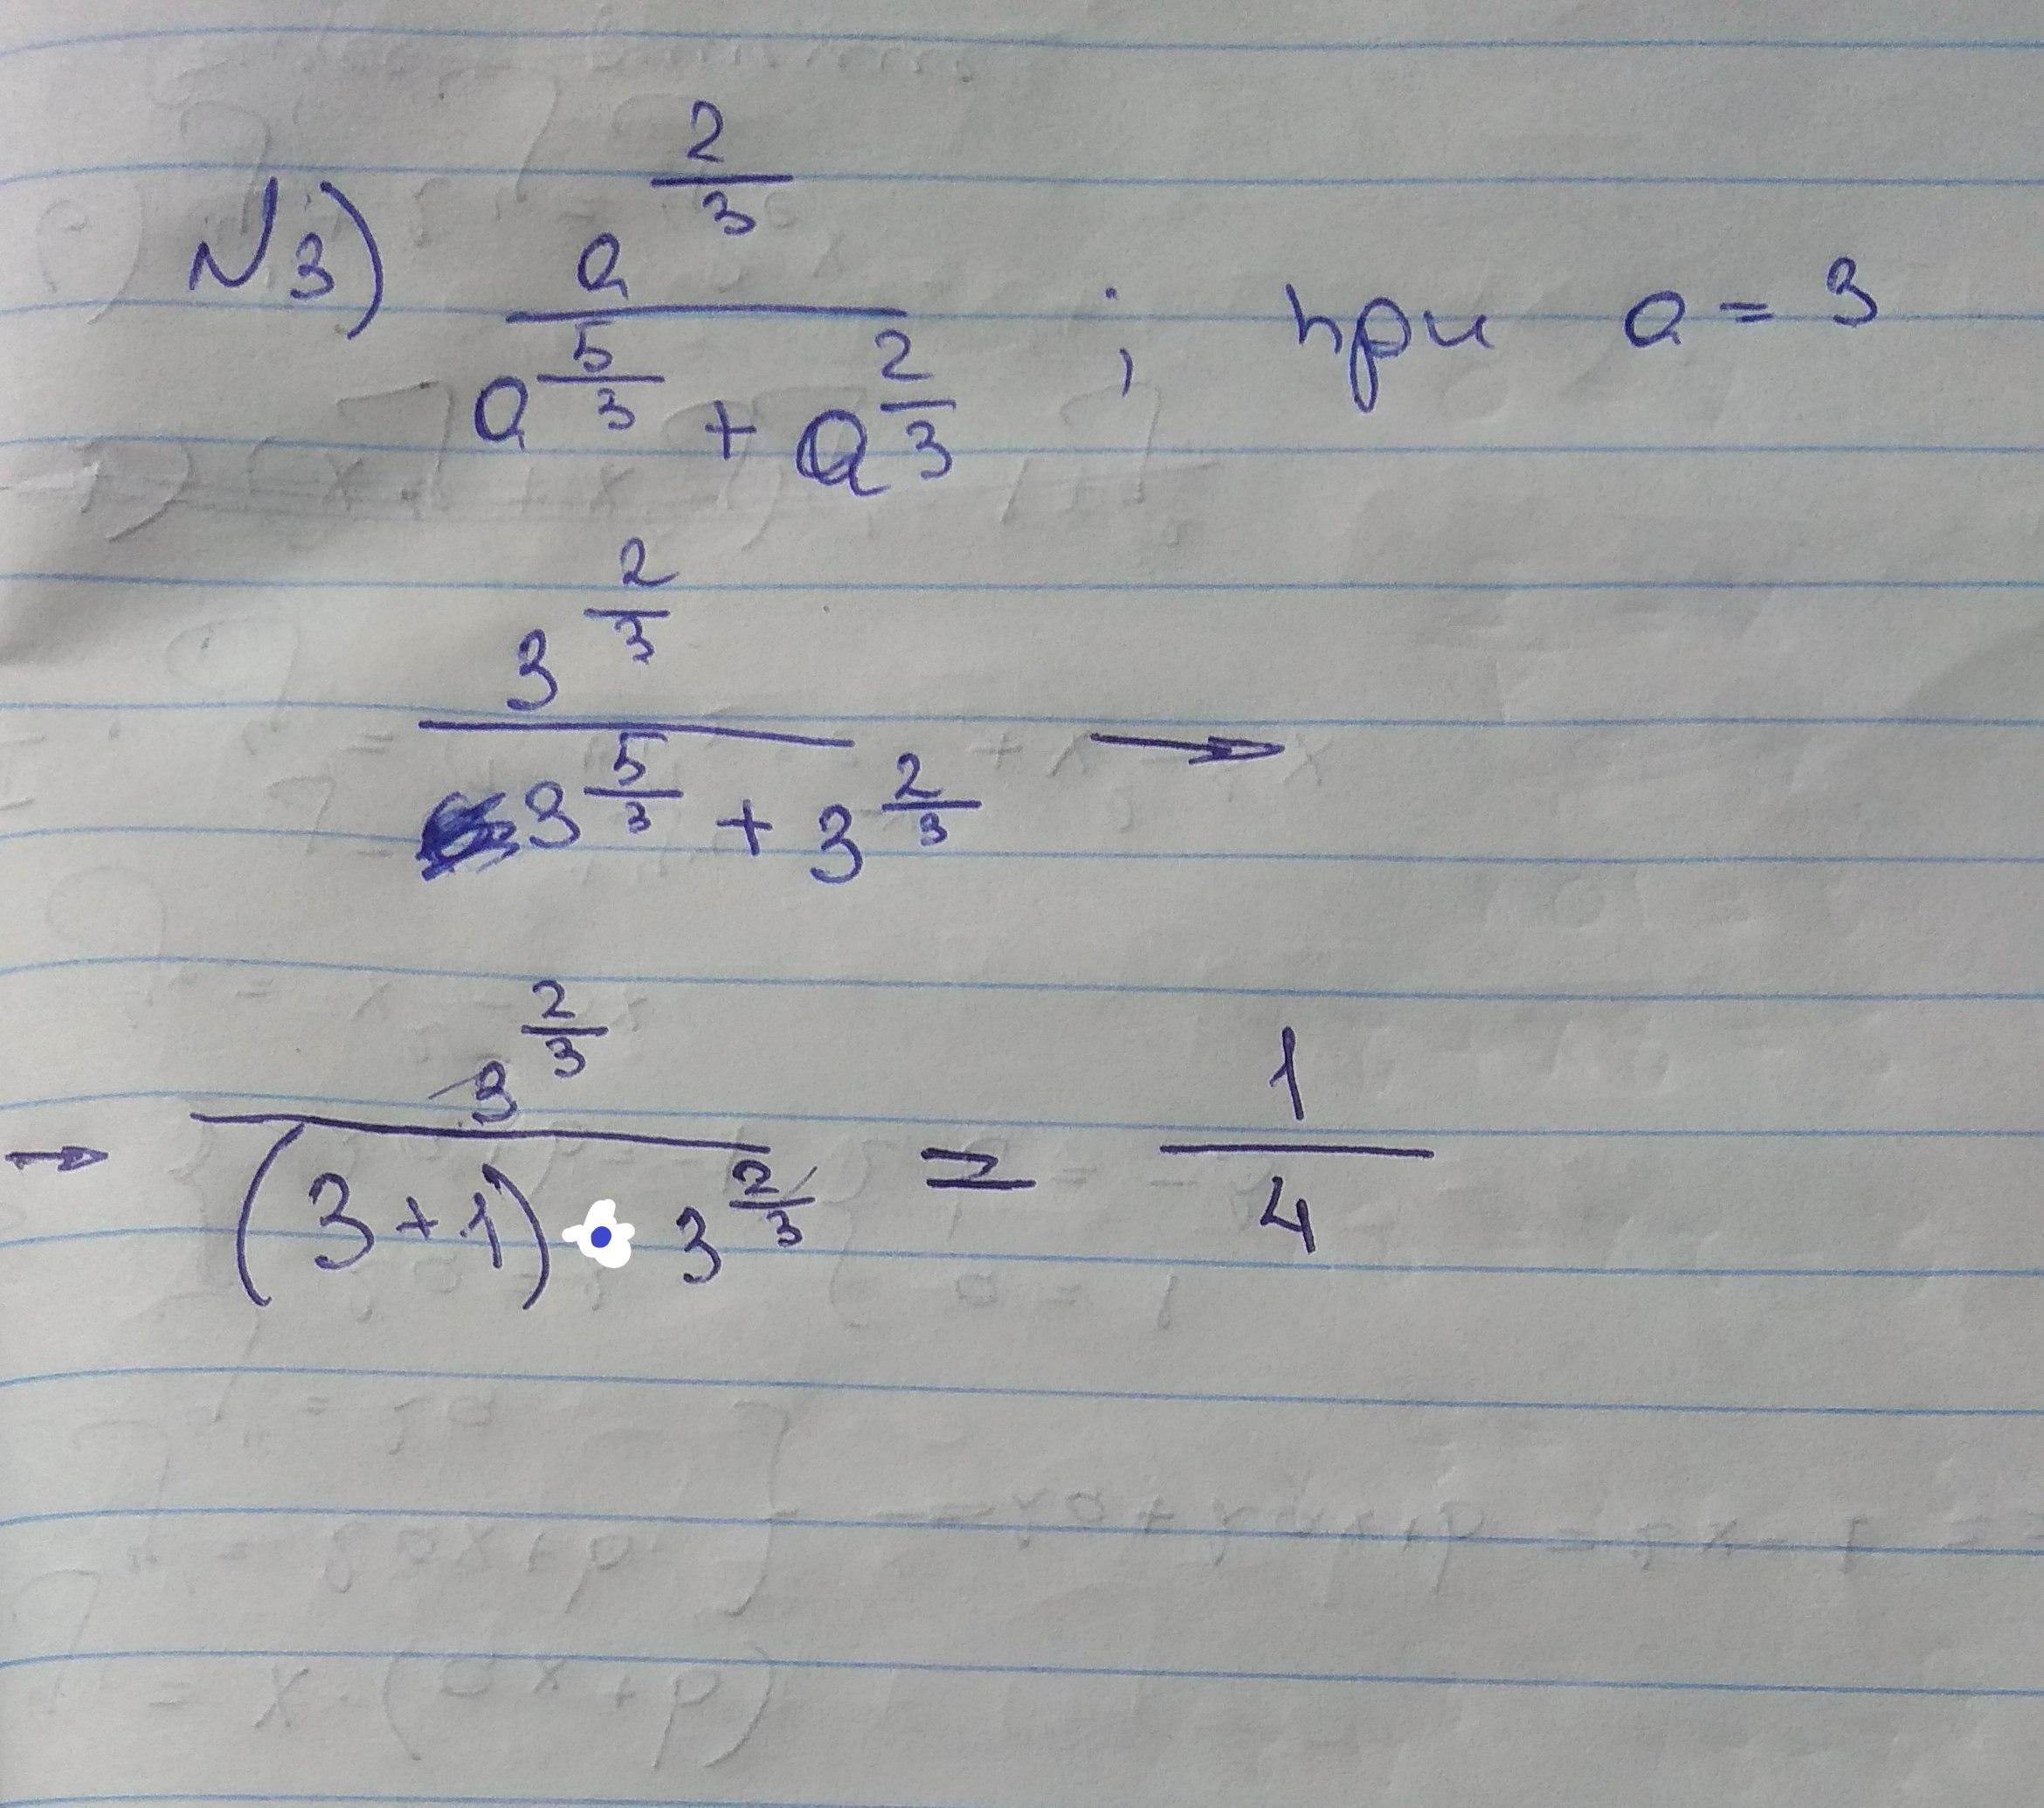 №3) a^(2/3) / (a^(5/3) + a^(2/3)) ; при a = 3
3^(2/3) / (3^(5/3) + 3^(2/3)) →
→ 3^(2/3) / ((3+1) · 3^(2/3)) = 1/4